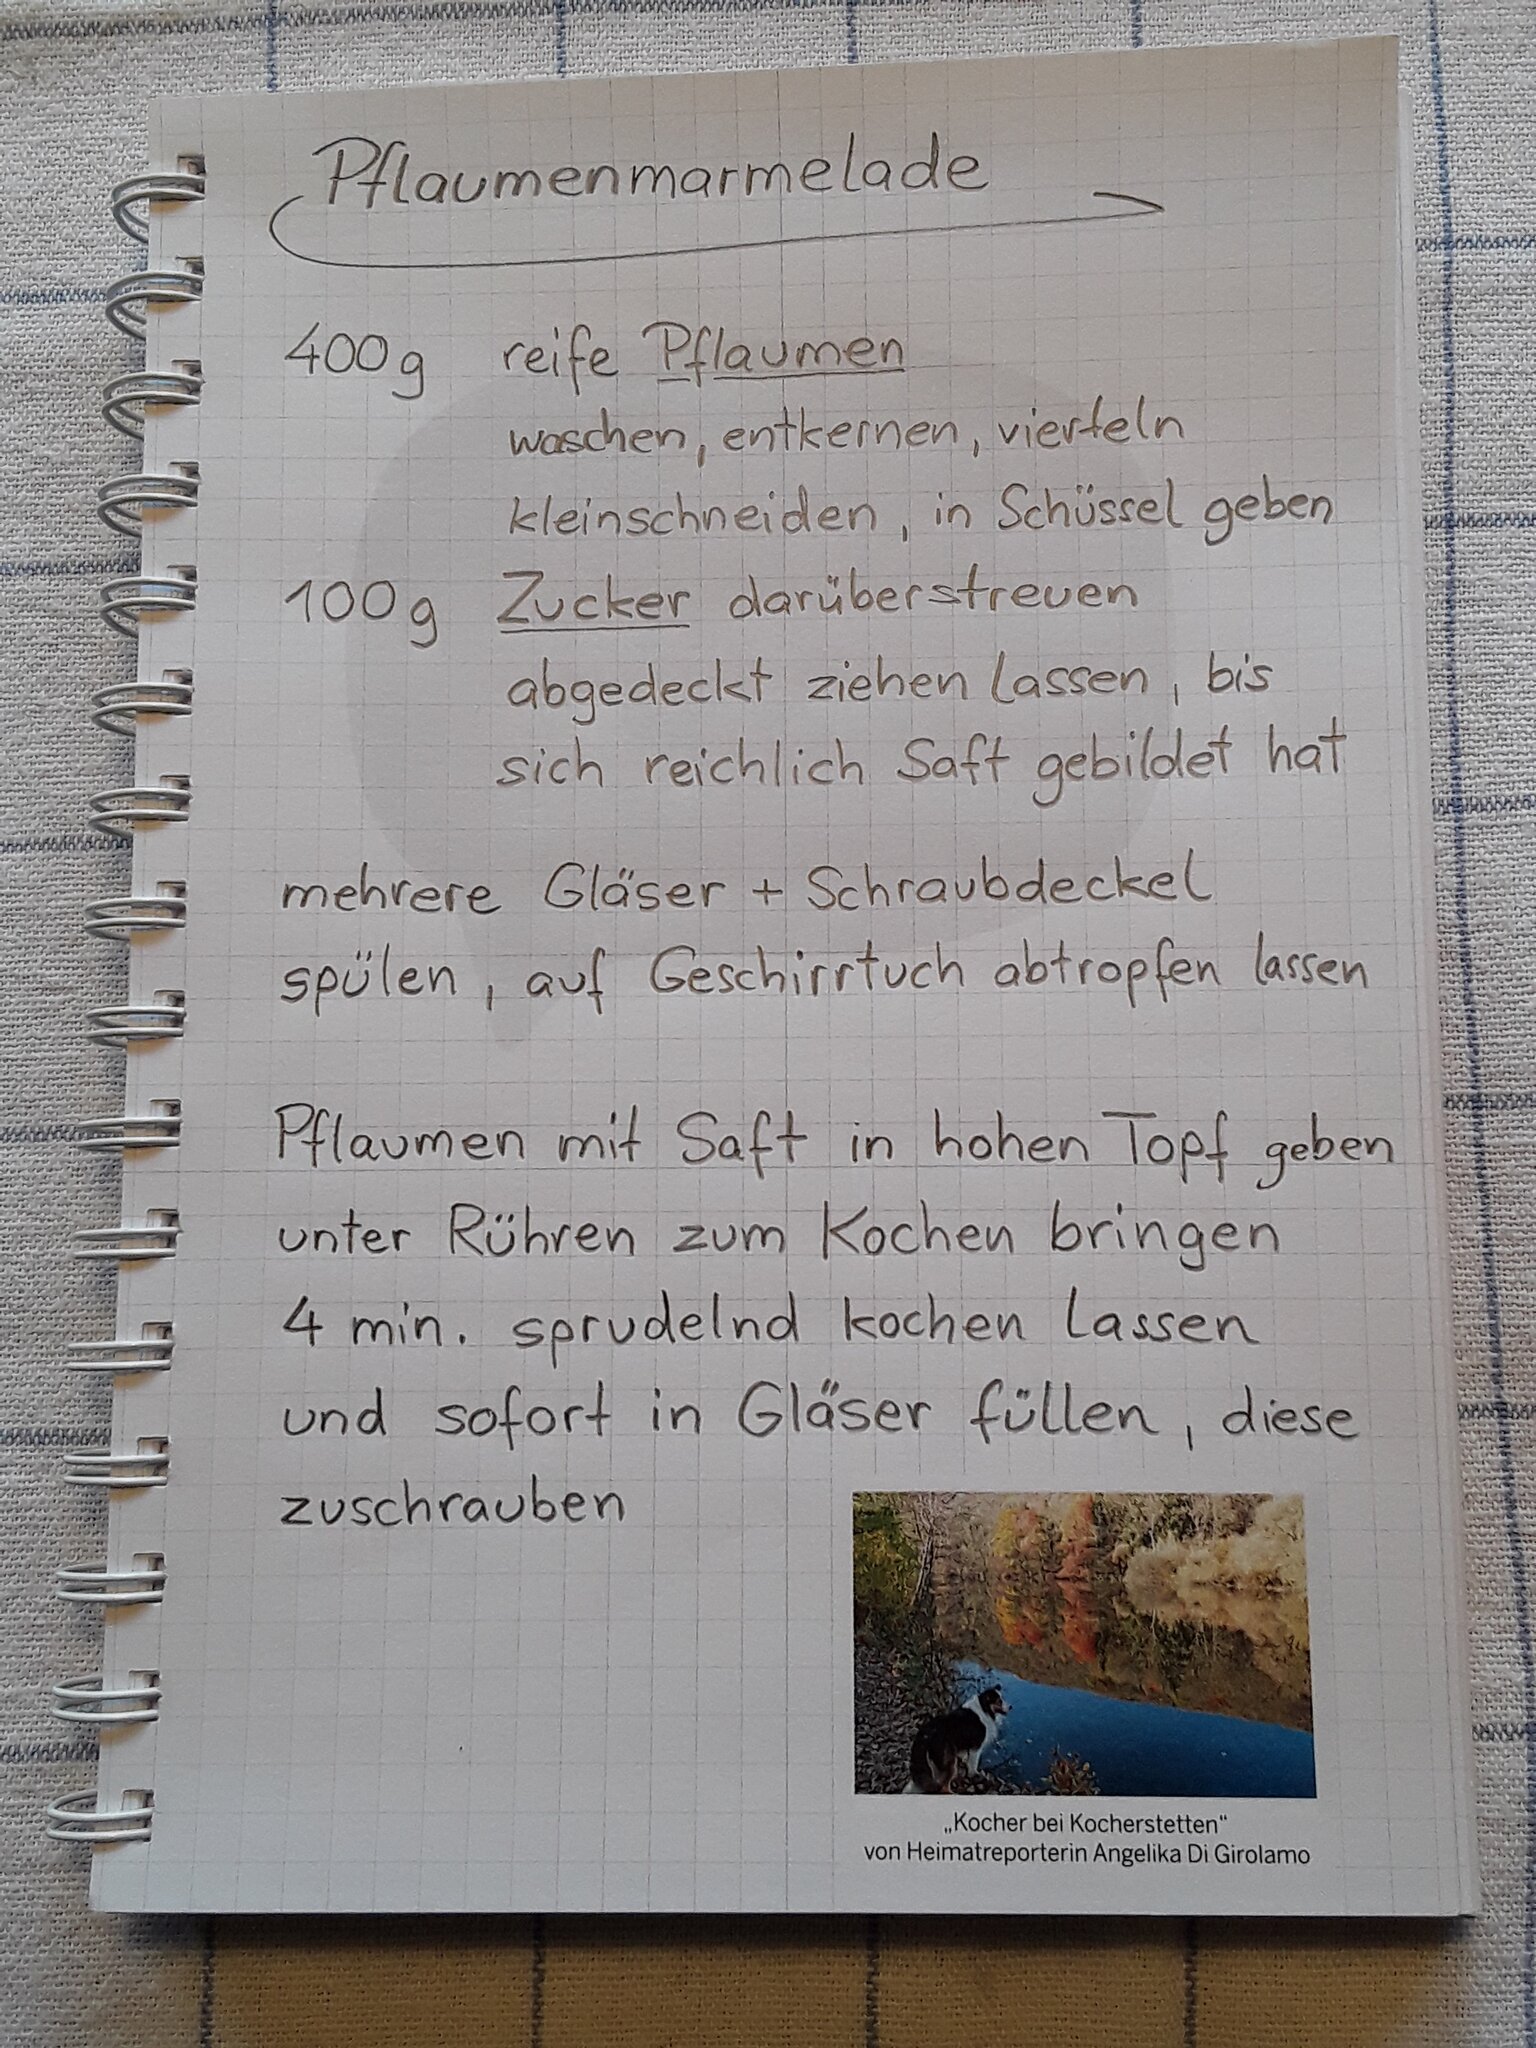 Pflaumenmarmelade
400g reife Pflaumen
waschen, entkernen, vierteln
kleinschneiden, in Schüssel geben
100g Zucker darüberstreuen
abgedeckt ziehen lassen, bis
sich reichlich Saft gebildet hat
mehrere Gläser + Schraubdeckel
spülen, auf Geschirrtuch abtropfen lassen
Pflaumen mit Saft in hohen Topf geben
unter Rühren zum Kochen bringen
4 min. sprudelnd kochen lassen
und sofort in Gläser füllen, diese
zuschrauben
„Kocher bei Kocherstetten“
von Heimatreporterin Angelika Di Girolamo